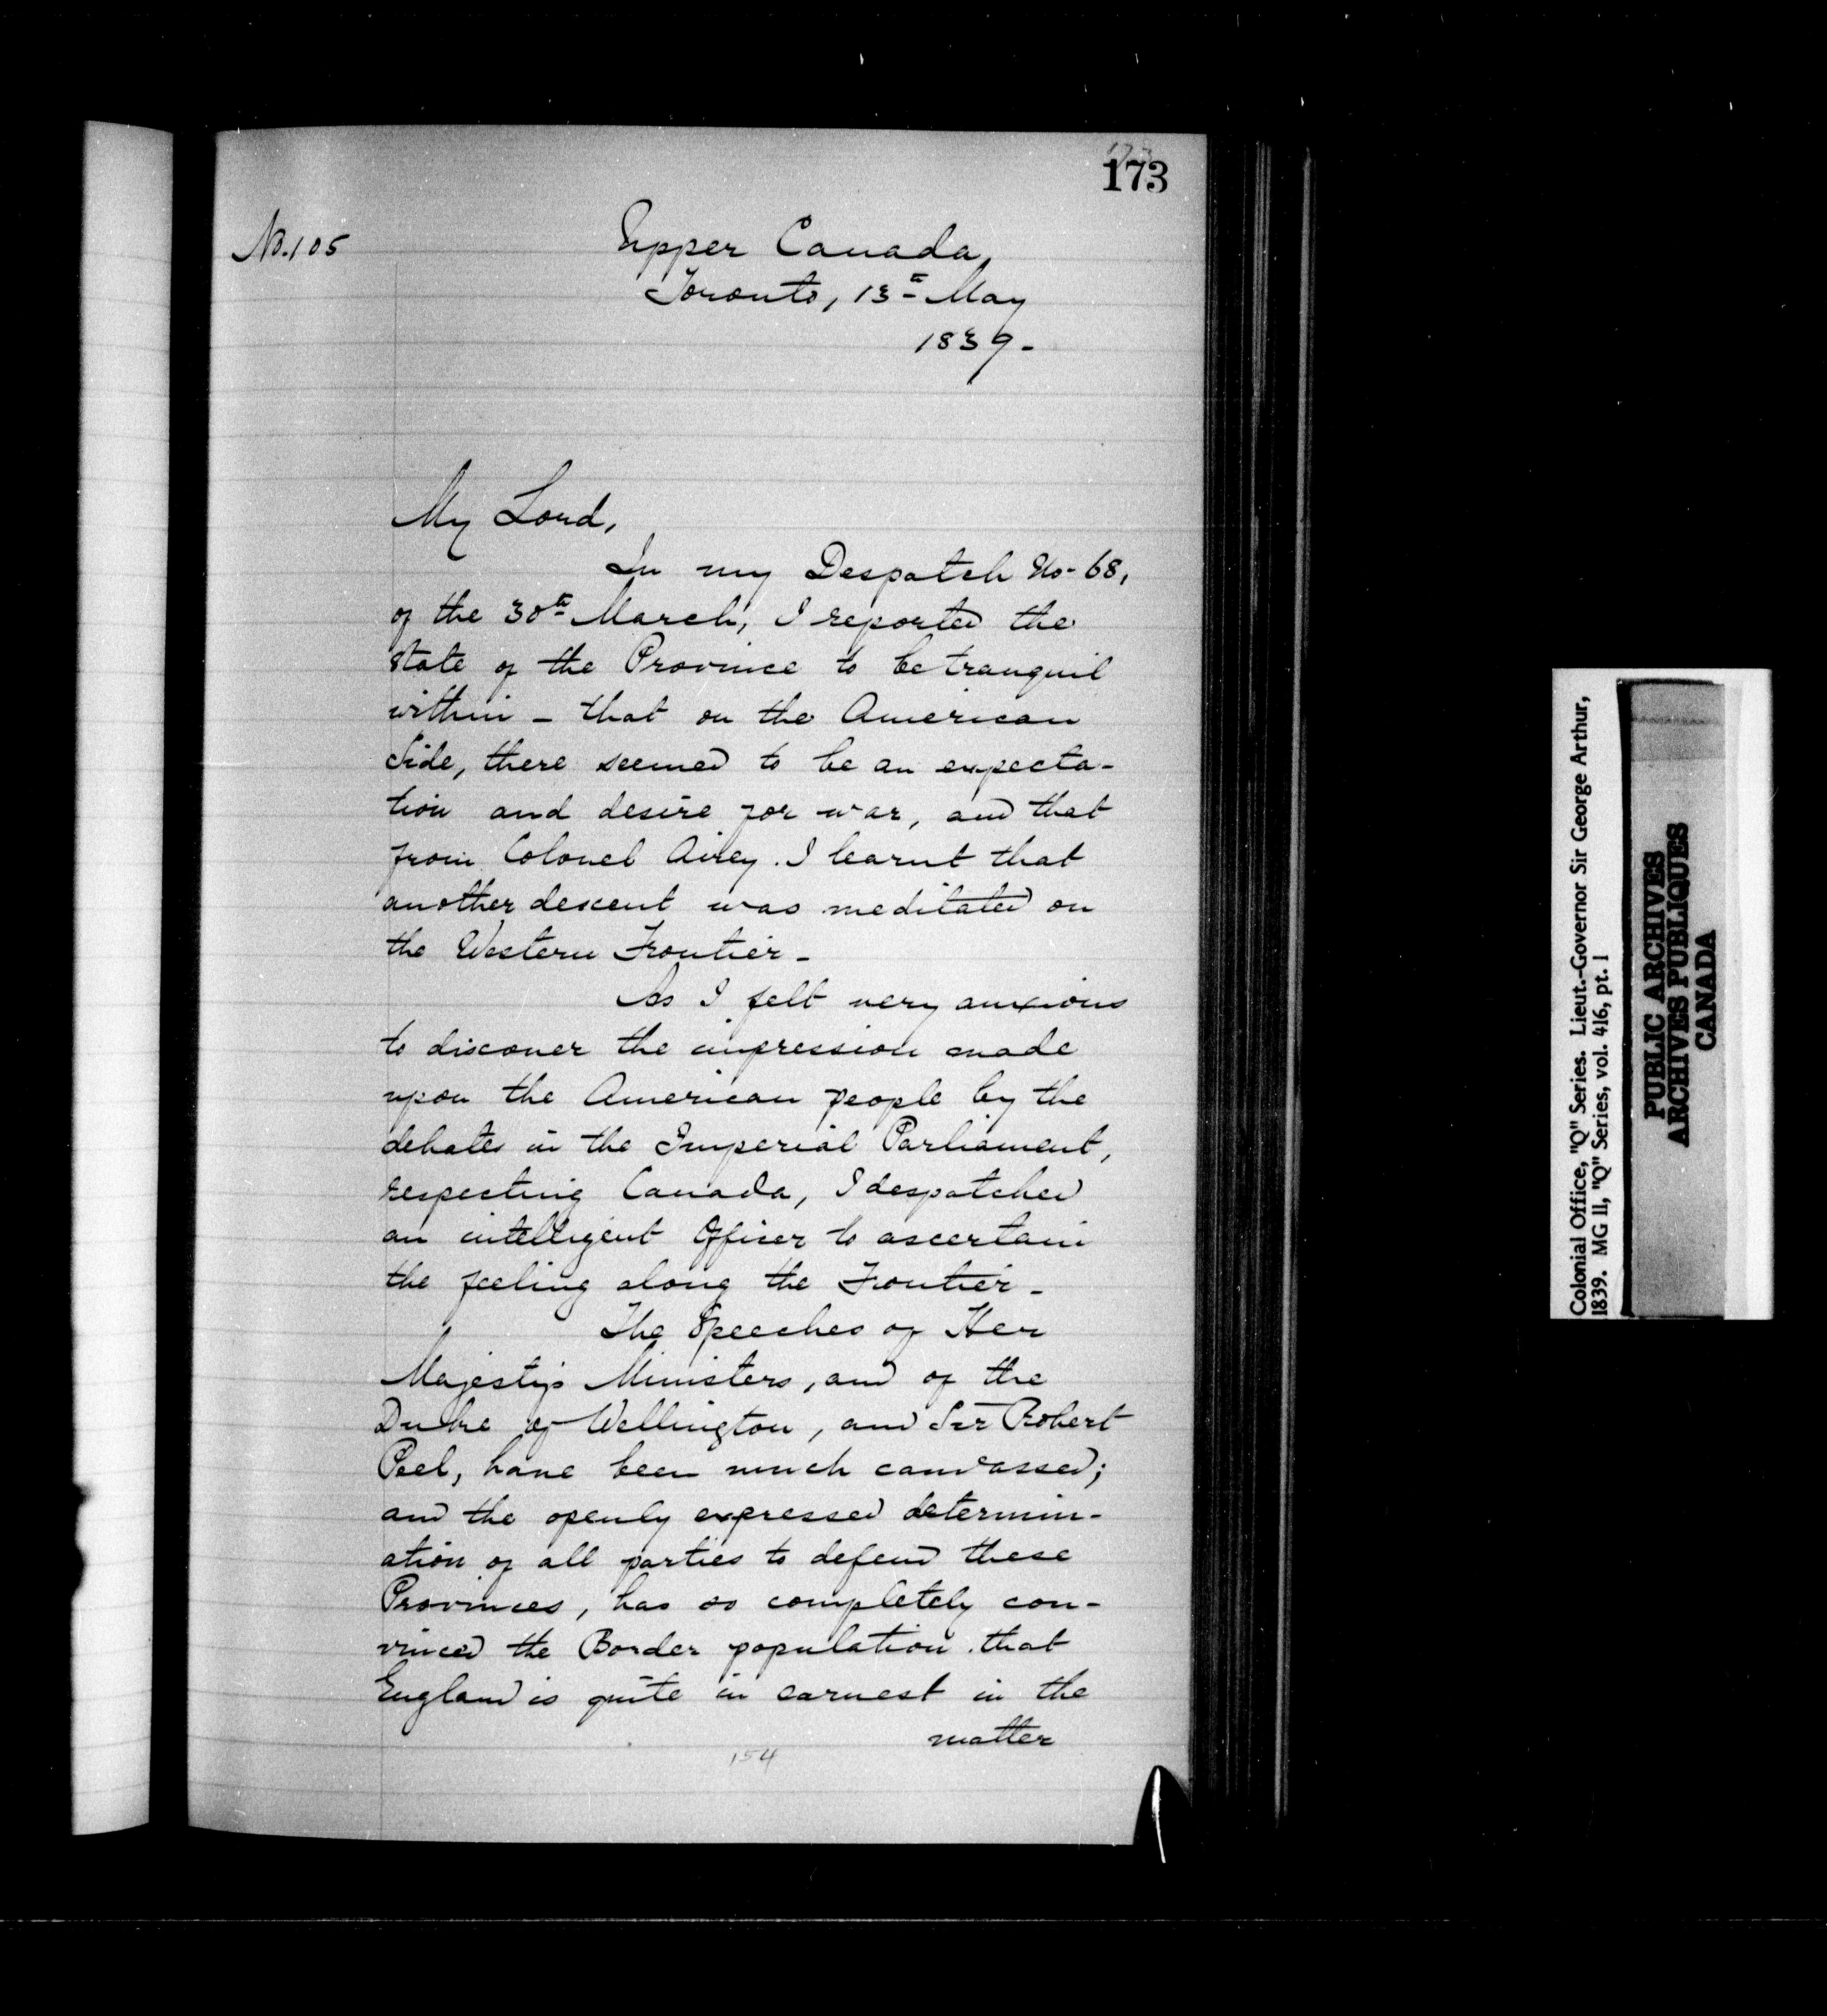 173
No. 105
Upper Canada,
Toronto, 13th May
1839-
My Lord,
In my Despatch No- 68,
of the 30th March, I reported the
state of the Province to be tranquil
within - that on the American
Side, there seemed to be an expecta-
tion and desire for war, and that
from Colonel Airey. I learnt that
another descent was meditated on
the Western Frontier-
As I felt very anxious
to discover the impression made
upon the American people by the
debates in the Imperial Parliament,
respecting Canada, I despatched
an intelligent Officer to ascertain
the feeling along the Frontier-
The Speeches of Her
Majesty's Ministers, and of the
Duke of Wellington, and Sir Robert
Peel, have been much canvassed;
and the openly expressed determin-
ation of all parties to defend these
Provinces, has so completely con-
vinced the Border population that
England is quite in earnest in the
matter
154
Colonial Office, "Q" Series. Lieut.-Governor Sir George Arthur,
1839. MG 11, "Q" Series, vol. 416, pt. 1
PUBLIC ARCHIVES
ARCHIVES PUBLIQUES
CANADA